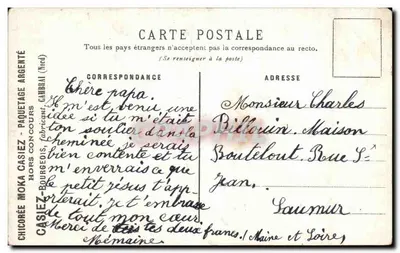 CARTE POSTALE
Tous les pays étrangers n'acceptent pas la correspondance au recto.
(Se renseigner à la poste)
CORRESPONDANCE
ADRESSE
CHICORÉE MOKA CASIEZ - PAQUETAGE ARGENTÉ
HORS CONCOURS
CASIEZ-BOURGEOIS, Fabricant, CAMBRAI (Nord)
Chère papa.
Il m'est venu une
idée si tu m'était
ton soulier dans la
cheminée je serais
bien contente et tu
m'enverrais ce que
le petit jésus t'app
orterait, je t'embrasse
de tout mon cœur.
Merci de tes deux francs.
Mémaine
Monsieur Charles
Billouin. Maison
Boutelout. Rue St
Jean.
Saumur
(Maine et Loire)